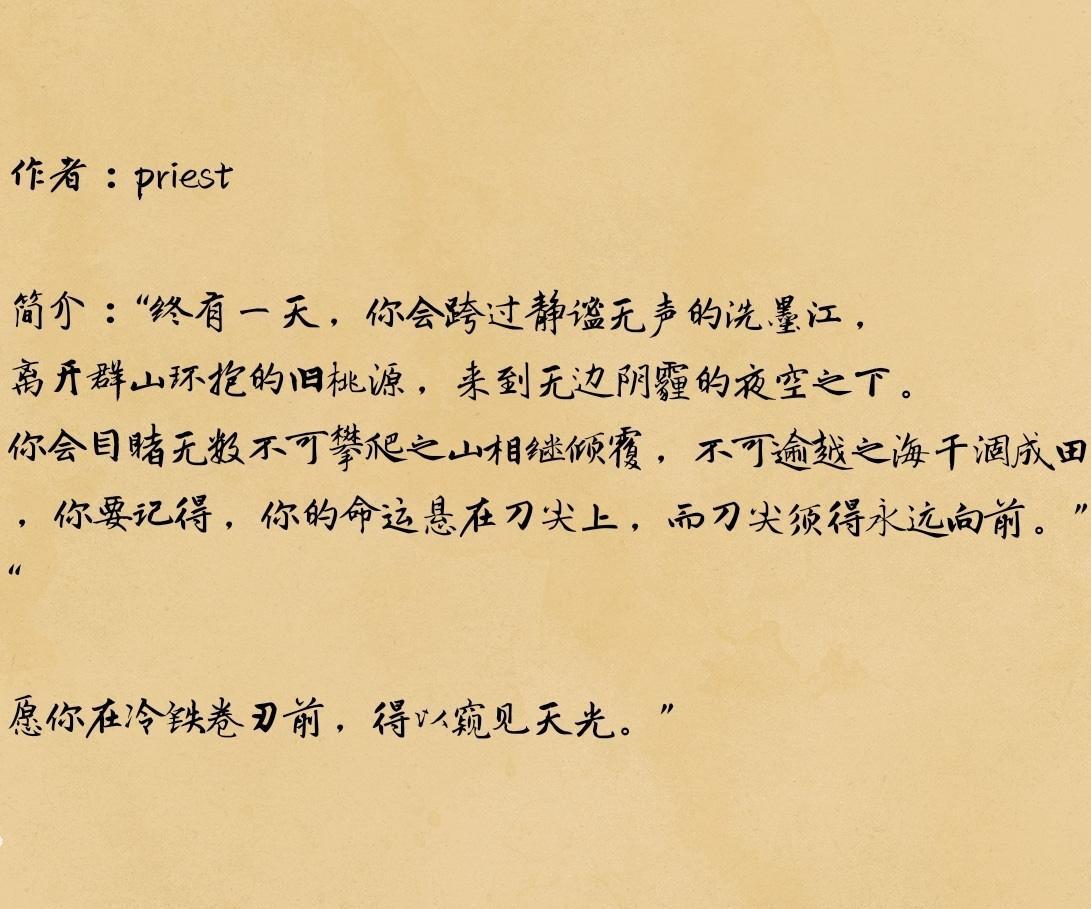 作者：priest
简介：“终有一天，你会跨过静谧无声的洗墨江，
离开群山环抱的旧桃源，来到无边阴霾的夜空之下。
你会目睹无数不可攀爬之山相继倾覆，不可逾越之海干涸成田
，你要记得，你的命运悬在刀尖上，而刀尖须得永远向前。”
“
愿你在冷铁卷刃前，得以窥见天光。”